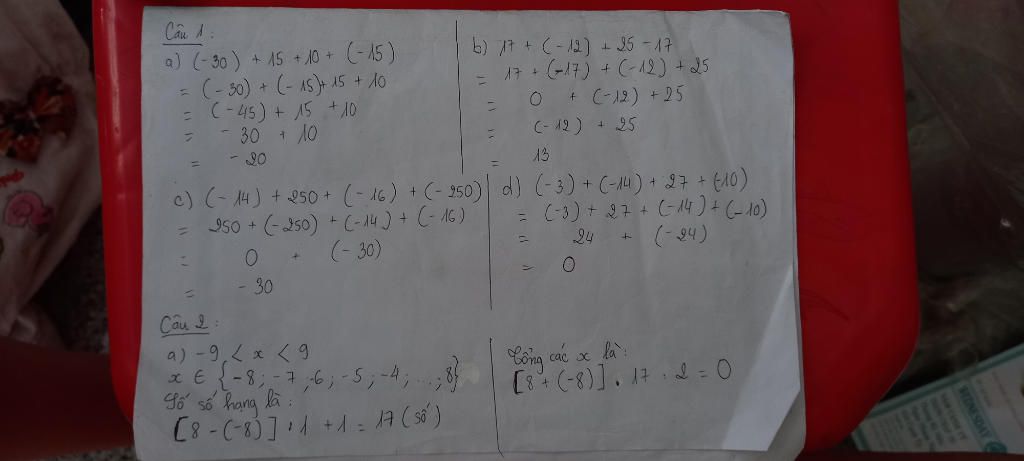 Câu 1:
a) (-30) + 15 + 10 + (-15)
= (-30) + (-15) + 15 + 10
= (-45) + 15 + 10
= -30 + 10
= -20
b) 17 + (-12) + 25 - 17
= 17 + (-17) + (-12) + 25
= 0 + (-12) + 25
= (-12) + 25
= 13
c) (-14) + 250 + (-16) + (-250)
= 250 + (-250) + (-14) + (-16)
= 0 + (-30)
= -30
d) (-3) + (-14) + 27 + (-10)
= (-3) + 27 + (-14) + (-10)
= 24 + (-24)
= 0
Câu 2:
a) -9 < x < 9
x ∈ {-8; -7; -6; -5; -4; ...; 8}
Số số hạng là:
[8 - (-8)] : 1 + 1 = 17 (số)
Tổng các x là:
[8 + (-8)] . 17 : 2 = 0